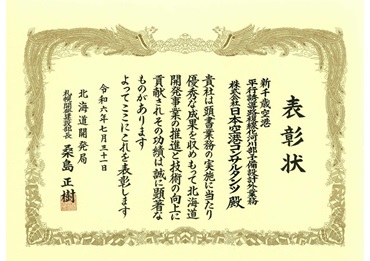 表彰状
新千歳空港
平行誘導路橋梁河川部予備設計外業務
株式会社日本空港コンサルタンツ 殿
貴社は頭書業務の実施に当たり
優秀な成果を収めもって北海道
開発事業の推進と技術の向上に
貢献されその功績は誠に顕著な
ものがあります
よってここにこれを表彰します
令和六年七月三十一日
北海道開発局
札幌開発建設部長 桑島正樹